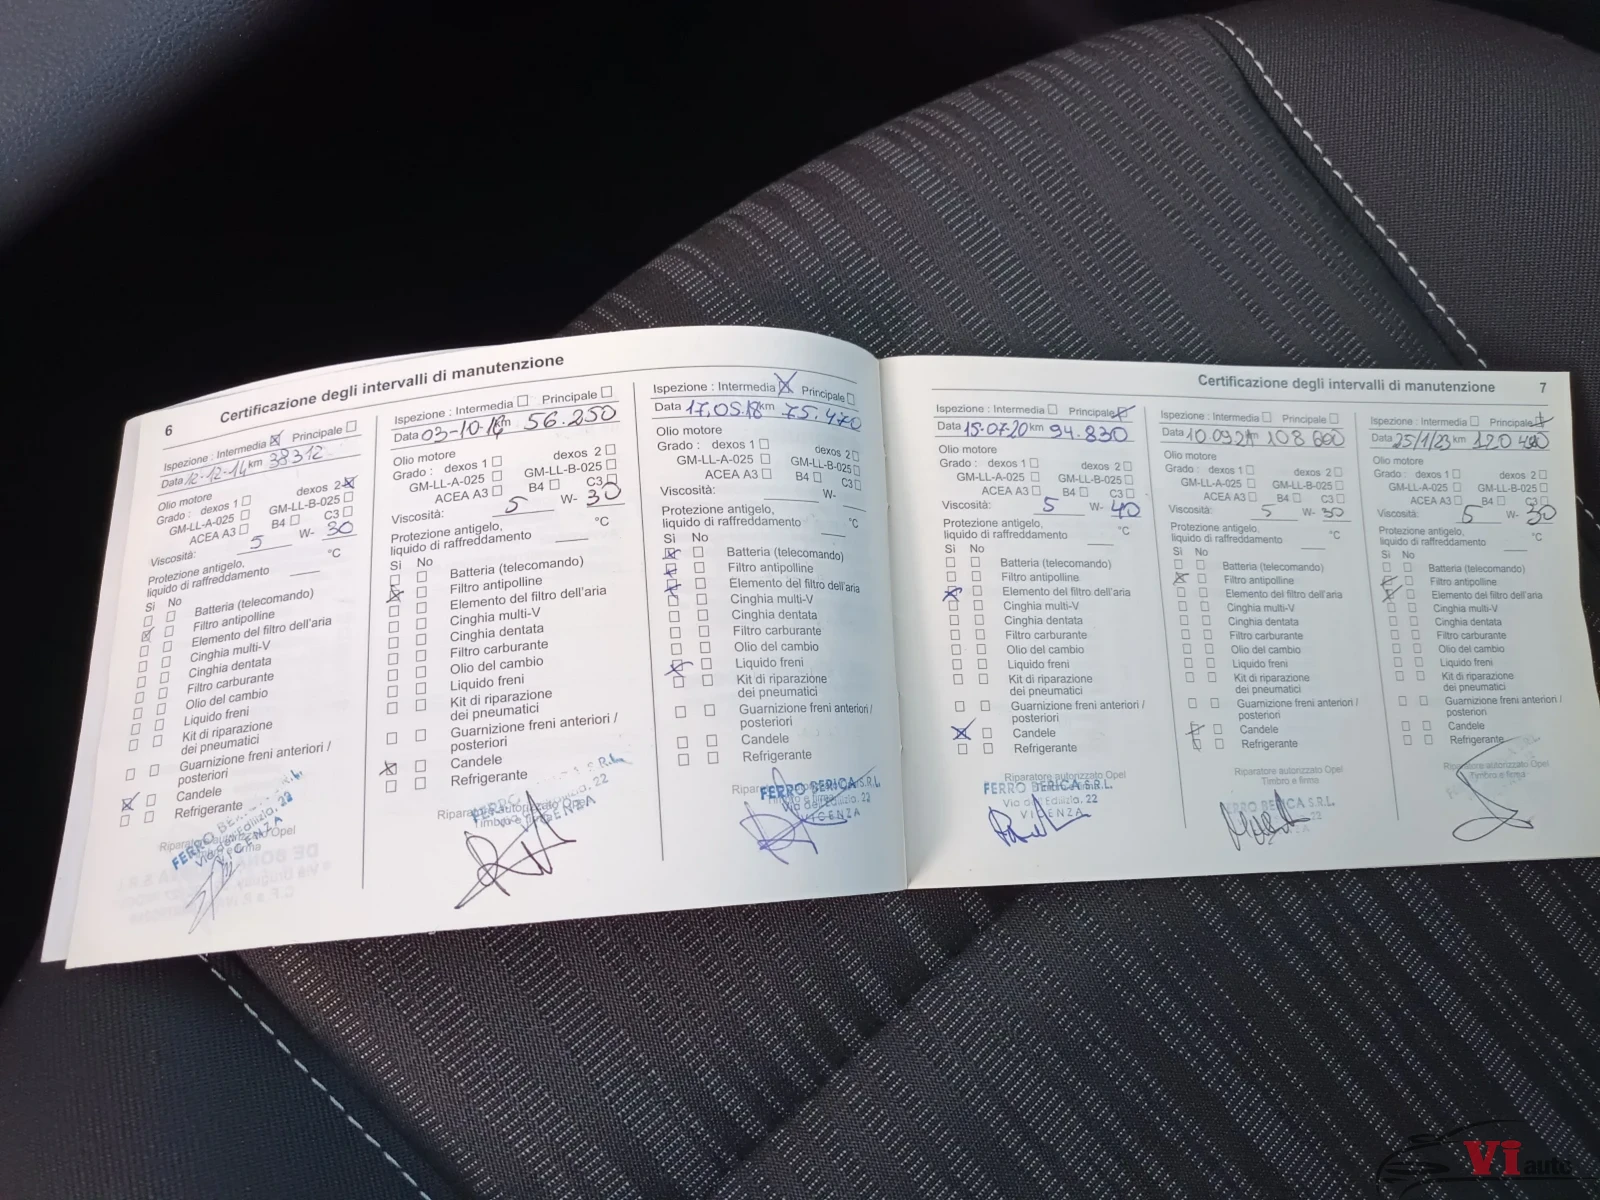 6
Certificazione degli intervalli di manutenzione
Ispezione : Intermedia ☒ Principale ☐
Data 12-12-14 km 38312
Olio motore
Grado : dexos 1 ☐ dexos 2 ☒
GM-LL-A-025 ☐ GM-LL-B-025 ☐
ACEA A3 ☐ B4 ☐ C3 ☐
Viscosità: 5 W- 30
Protezione antigelo,
liquido di raffreddamento ____ °C
Sì No
☐ ☐ Batteria (telecomando)
☒ ☐ Filtro antipolline
☐ ☐ Elemento del filtro dell'aria
☐ ☐ Cinghia multi-V
☐ ☐ Cinghia dentata
☐ ☐ Filtro carburante
☐ ☐ Olio del cambio
☐ ☐ Liquido freni
☐ ☐ Kit di riparazione
dei pneumatici
☐ ☐ Guarnizione freni anteriori /
posteriori
☒ ☐ Candele
☐ ☐ Refrigerante
Riparatore autorizzato Opel
Timbro e firma
FERRO BERICA S.R.L.
Via dell'Edilizia, 22
VICENZA
Ispezione : Intermedia ☐ Principale ☐
Data 03-10-16 km 56.250
Olio motore
Grado : dexos 1 ☐ dexos 2 ☐
GM-LL-A-025 ☐ GM-LL-B-025 ☐
ACEA A3 ☐ B4 ☐ C3 ☐
Viscosità: 5 W- 30
Protezione antigelo,
liquido di raffreddamento ____ °C
Sì No
☐ ☐ Batteria (telecomando)
☒ ☐ Filtro antipolline
☐ ☐ Elemento del filtro dell'aria
☐ ☐ Cinghia multi-V
☐ ☐ Cinghia dentata
☐ ☐ Filtro carburante
☐ ☐ Olio del cambio
☐ ☐ Liquido freni
☐ ☐ Kit di riparazione
dei pneumatici
☐ ☐ Guarnizione freni anteriori /
posteriori
☒ ☐ Candele
☐ ☐ Refrigerante
Riparatore autorizzato Opel
Timbro e firma
FERRO S.R.L.
22
VICENZA
Ispezione : Intermedia ☒ Principale ☐
Data 17.05.18 km 75.470
Olio motore
Grado : dexos 1 ☐ dexos 2 ☐
GM-LL-A-025 ☐ GM-LL-B-025 ☐
ACEA A3 ☐ B4 ☐ C3 ☐
Viscosità: ____ W- ____
Protezione antigelo,
liquido di raffreddamento ____ °C
Sì No
☒ ☐ Batteria (telecomando)
☒ ☐ Filtro antipolline
☒ ☐ Elemento del filtro dell'aria
☐ ☐ Cinghia multi-V
☐ ☐ Cinghia dentata
☐ ☐ Filtro carburante
☐ ☐ Olio del cambio
☒ ☐ Liquido freni
☐ ☐ Kit di riparazione
dei pneumatici
☐ ☐ Guarnizione freni anteriori /
posteriori
☐ ☐ Candele
☐ ☐ Refrigerante
FERRO BERICA S.R.L.
Via dell'Edilizia, 22
VICENZA
Certificazione degli intervalli di manutenzione 7
Ispezione : Intermedia ☐ Principale ☒
Data 15.07.20 km 94.830
Olio motore
Grado : dexos 1 ☐ dexos 2 ☐
GM-LL-A-025 ☐ GM-LL-B-025 ☐
ACEA A3 ☐ B4 ☐ C3 ☐
Viscosità: 5 W- 40
Protezione antigelo,
liquido di raffreddamento ____ °C
Sì No
☐ ☐ Batteria (telecomando)
☐ ☐ Filtro antipolline
☒ ☐ Elemento del filtro dell'aria
☐ ☐ Cinghia multi-V
☐ ☐ Cinghia dentata
☐ ☐ Filtro carburante
☐ ☐ Olio del cambio
☐ ☐ Liquido freni
☐ ☐ Kit di riparazione
dei pneumatici
☐ ☐ Guarnizione freni anteriori /
posteriori
☒ ☐ Candele
☐ ☐ Refrigerante
Riparatore autorizzato Opel
FERRO BERICA S.R.L.
Via dell'Edilizia, 22
VICENZA
Ispezione : Intermedia ☐ Principale ☐
Data 10 09 21 km 108 600
Olio motore
Grado : dexos 1 ☐ dexos 2 ☐
GM-LL-A-025 ☐ GM-LL-B-025 ☐
ACEA A3 ☐ B4 ☐ C3 ☐
Viscosità: 5 W- 30
Protezione antigelo,
liquido di raffreddamento ____ °C
Sì No
☐ ☐ Batteria (telecomando)
☒ ☐ Filtro antipolline
☐ ☐ Elemento del filtro dell'aria
☐ ☐ Cinghia multi-V
☐ ☐ Cinghia dentata
☐ ☐ Filtro carburante
☐ ☐ Olio del cambio
☐ ☐ Liquido freni
☐ ☐ Kit di riparazione
dei pneumatici
☐ ☐ Guarnizione freni anteriori /
posteriori
☒ ☐ Candele
☐ ☐ Refrigerante
Riparatore autorizzato Opel
Timbro e firma
FERRO BERICA S.R.L.
22
Ispezione : Intermedia ☐ Principale ☒
Data 25/1/23 km 120
Olio motore
Grado : dexos 1 ☐ dexos 2 ☐
GM-LL-A-025 ☐ GM-LL-B-025 ☐
ACEA A3 ☐ B4 ☐ C3 ☐
Viscosità: 5 W- 30
Protezione antigelo,
liquido di raffreddamento ____ °C
Sì No
☐ ☐ Batteria (telecomando)
☒ ☐ Filtro antipolline
☒ ☐ Elemento del filtro dell'aria
☐ ☐ Cinghia multi-V
☐ ☐ Cinghia dentata
☐ ☐ Filtro carburante
☐ ☐ Olio del cambio
☐ ☐ Liquido freni
☐ ☐ Kit di riparazione
dei pneumatici
☐ ☐ Guarnizione freni anteriori /
posteriori
☐ ☐ Candele
☐ ☐ Refrigerante
Riparatore autorizzato Opel
Timbro e firma
Vi auto